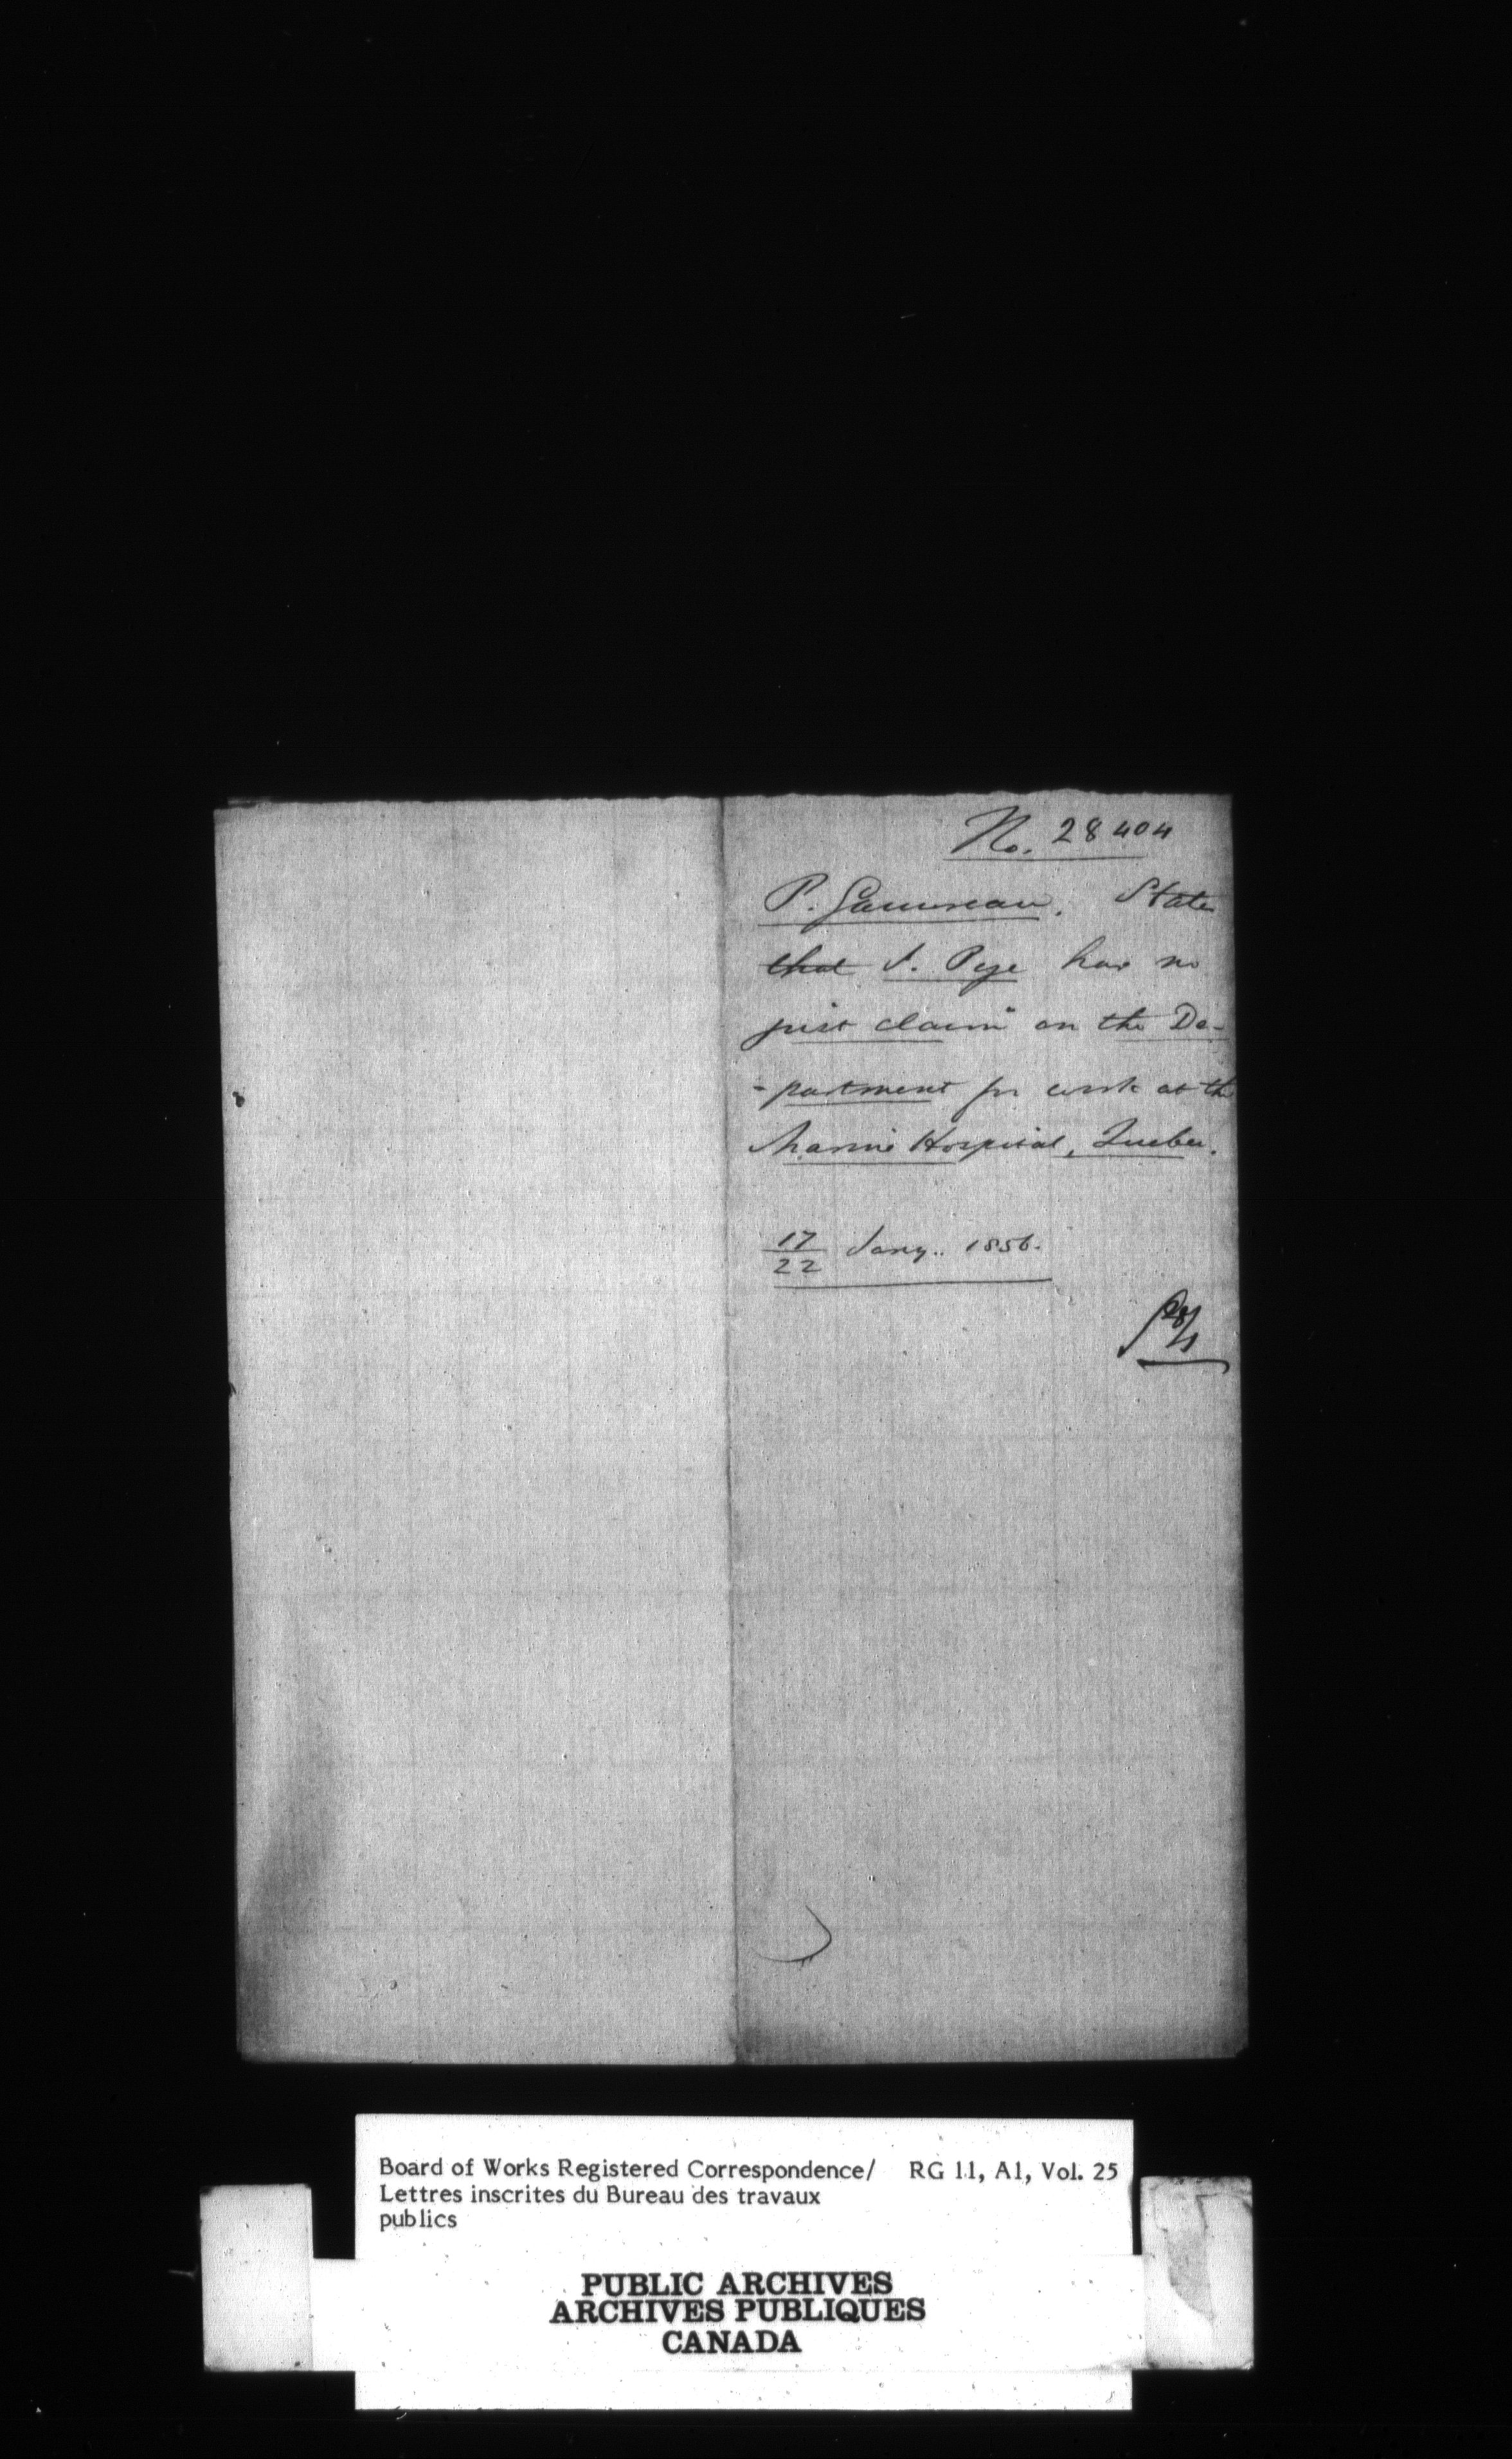 No. 28404
P. Gauvreau. States
that J. Pye has no
just claim on the De-
-partment for work at the
Marine Hospital, Quebec.
17/22 Jany.. 1856.
Board of Works Registered Correspondence/ RG 11, A1, Vol. 25
Lettres inscrites du Bureau des travaux
publics
PUBLIC ARCHIVES
ARCHIVES PUBLIQUES
CANADA